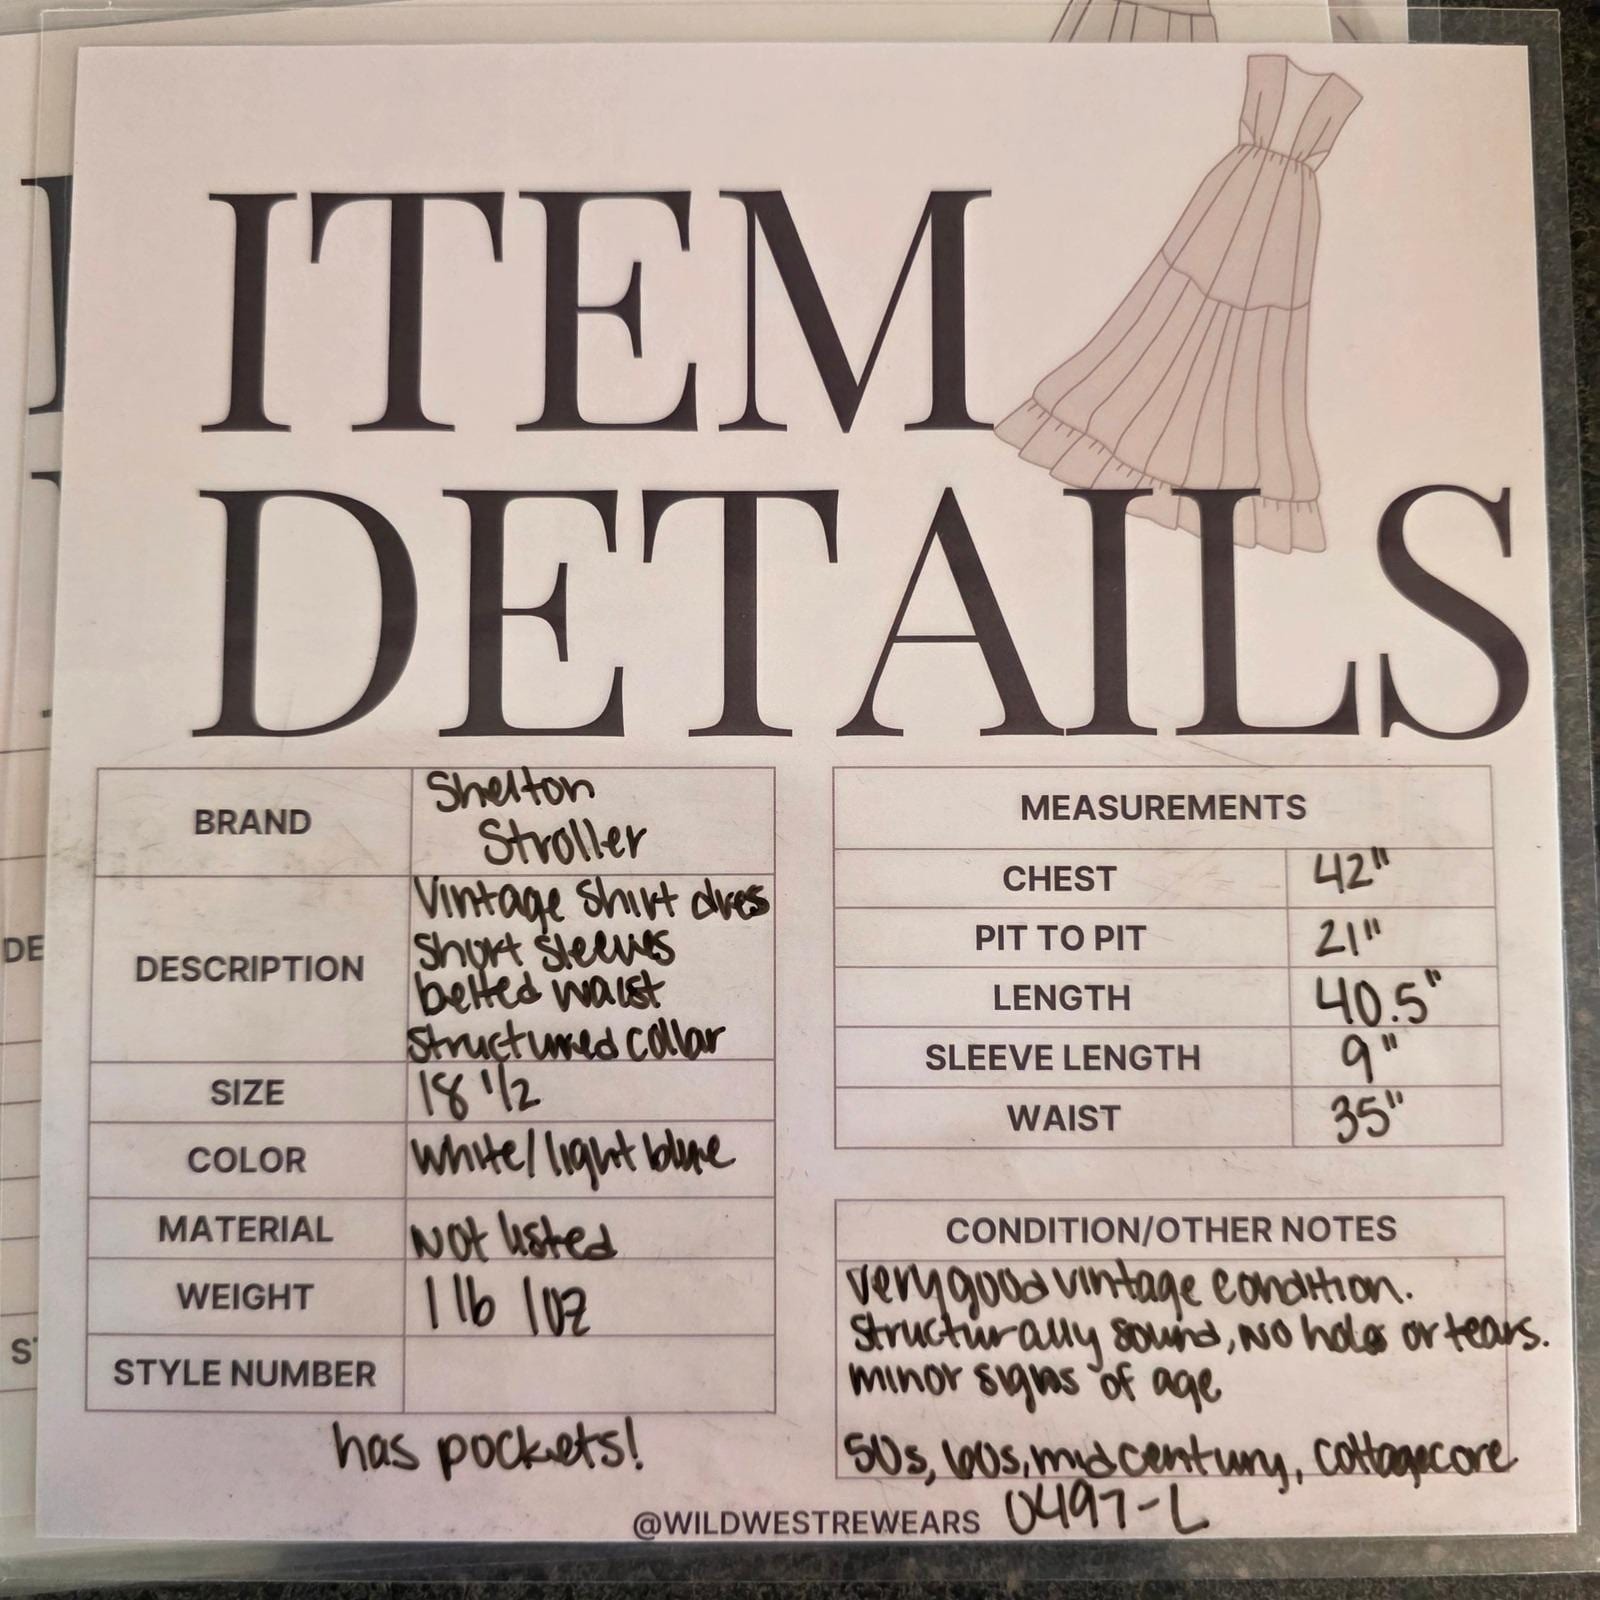 ITEM
DETAILS
BRAND
Shelton
Stroller
DESCRIPTION
Vintage Shirt dres
Short sleeves
belted waist
structured collar
SIZE
18 1/2
COLOR
white/light blue
MATERIAL
Not listed
WEIGHT
1 lb 1oz
STYLE NUMBER
has pockets!
MEASUREMENTS
CHEST
42"
PIT TO PIT
21"
LENGTH
40.5"
SLEEVE LENGTH
9"
WAIST
35"
CONDITION/OTHER NOTES
very good vintage condition.
structurally sound, NO holes or tears.
minor signs of age
50s, 60s, mid century, cottagecore
@WILDWESTREWEARS
0497-L
DE